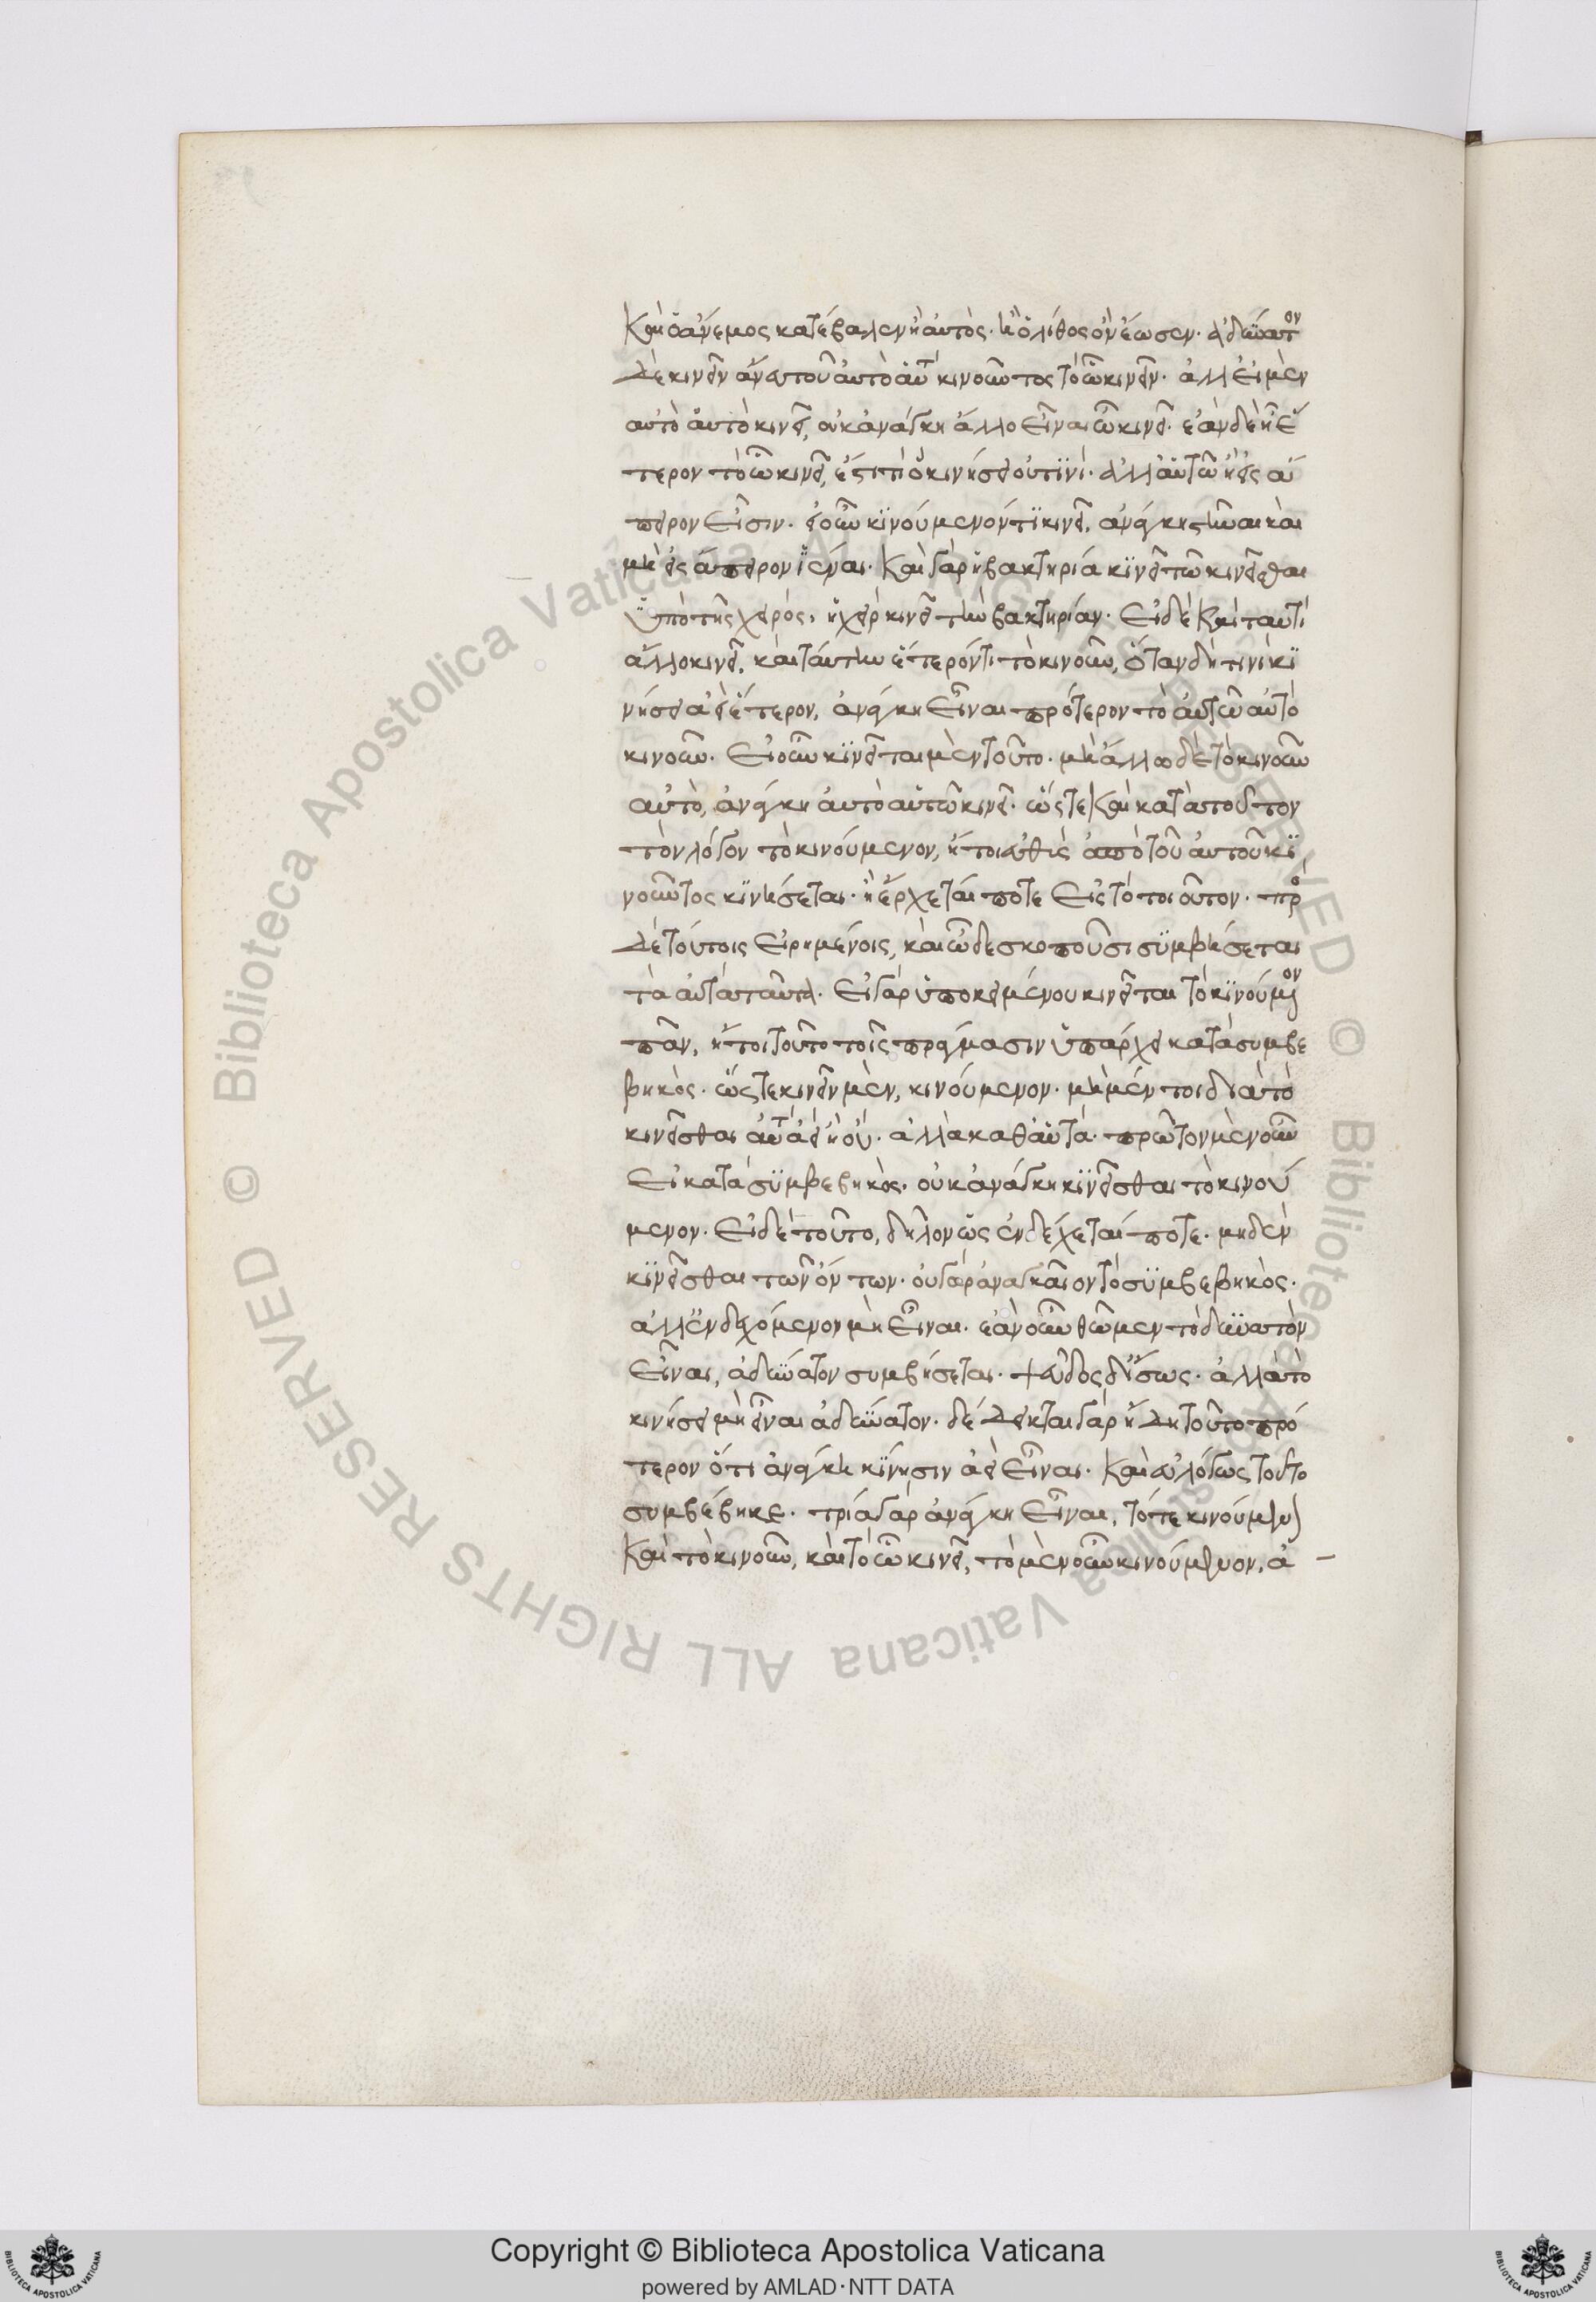 καὶ ὁ ἄνεμος κατέβαλεν ἢ αὐτὸς. ἢ ὁ λίθος ὃν ἔωσεν. ἀδύνατον
δὲ κινεῖν ἄνευ τοῦ αὐτὸ αὑτὸ κινοῦντος τὸ ᾧ κινεῖν. ἀλλ' εἰ μὲν
αὐτὸ αὑτὸ κινεῖ, οὐκ ἀνάγκη ἄλλο εἶναι ᾧ κινεῖ. ἐὰν δὲ ἢ ἕ
τερον τὸ ᾧ κινεῖ, ἔστι τι ὃ κινήσει οὐ τινὶ. ἀλλ' αὑτῶ ἢ εἰς ἄ
πειρον εἶσιν. εἰ οὖν κινούμενόν τι κινεῖ, ἀνάγκη στῆναι καὶ
μὴ εἰς ἄπειρον ἰέναι. καὶ γὰρ ἡ βακτηρία κινεῖ τῶ κινεῖσθαι
ὑπὸ τῆς χειρός, ἡ χεὶρ κινεῖ τὴν βακτηρίαν. εἰ δὲ καὶ ταύτη
ἄλλο κινεῖ, καὶ ταύτην ἕτερόν τι τὸ κινοῦν, ὅταν δή τινι κι
νήσει ἀεὶ ἕτερον, ἀνάγκη εἶναι πρότερον τὸ αὑτῶ αὐτὸ
κινοῦν. εἰ οὖν κινεῖται μὲν τοῦτο. μὴ ἄλλο δὲ τὸ κινοῦν
αὐτὸ, ἀνάγκη αὐτὸ αὑτῶ κινεῖ. ὥστε καὶ κατὰ τοῦτον
τὸν λόγον τὸ κινούμενον, ἤτοι εὐθὺς ἀπὸ τοῦ αὐτοῦ κι
νοῦντος κινήσεται. ἢ ἔρχεταί ποτε εἰς τὸ τοιοῦτον. πρὸς
δὲ τούτοις εἰρημένοις, καὶ ὧδε σκοποῦσι συμβήσεται
τὰ αὐτὰ ταῦτα. εἰ γὰρ ὑποκειμένου κινεῖται τὸ κινούμενον
πᾶν, ἤτοι τοῦτο τοῖς πράγμασιν ὑπάρχει κατὰ συμβε
βηκὸς. ὥστε κινεῖν μὲν, κινούμενον. μὴ μέντοι διὰ τὸ
κινεῖσθαι αὐτὸ ἀεὶ ἢ οὔ. ἀλλὰ καθ' αὑτὸ. πρῶτον μὲν οὖν
εἰ κατὰ συμβεβηκὸς. οὐκ ἀνάγκη κινεῖσθαι τὸ κινού
μενον. εἰ δὲ τοῦτο, δῆλον ὡς ἐνδέχεταί ποτε. μηδὲν
κινεῖσθαι τῶν ὄντων. οὐ γὰρ ἀναγκαῖον τὸ συμβεβηκὸς.
ἀλλ' ἐνδεχόμενον μὴ εἶναι. ἐὰν οὖν θῶμεν τὸ δυνατὸν
εἶναι, ἀδύνατον συμβήσεται. ψεῦδος δ' ἴσως. ἀλλὰ τὸ
κινήσει μὴ εἶναι ἀδύνατον. δέδεικται γὰρ ἤδη τοῦτο πρό
τερον ὅτι ἀνάγκη κίνησιν ἀεὶ εἶναι. καὶ εὐλόγως τοῦτο
συμβέβηκε. τρία γὰρ ἀνάγκη εἶναι, τό τε κινούμενον
καὶ τὸ κινοῦν, καὶ τὸ ᾧ κινεῖ, τὸ μὲν οὖν κινούμενον, ἀ
© Biblioteca Apostolica Vaticana ALL RIGHTS RESERVED © Biblioteca Apostolica Vaticana ALL RIGHTS RESERVED
Copyright © Biblioteca Apostolica Vaticana
powered by AMLAD·NTT DATA